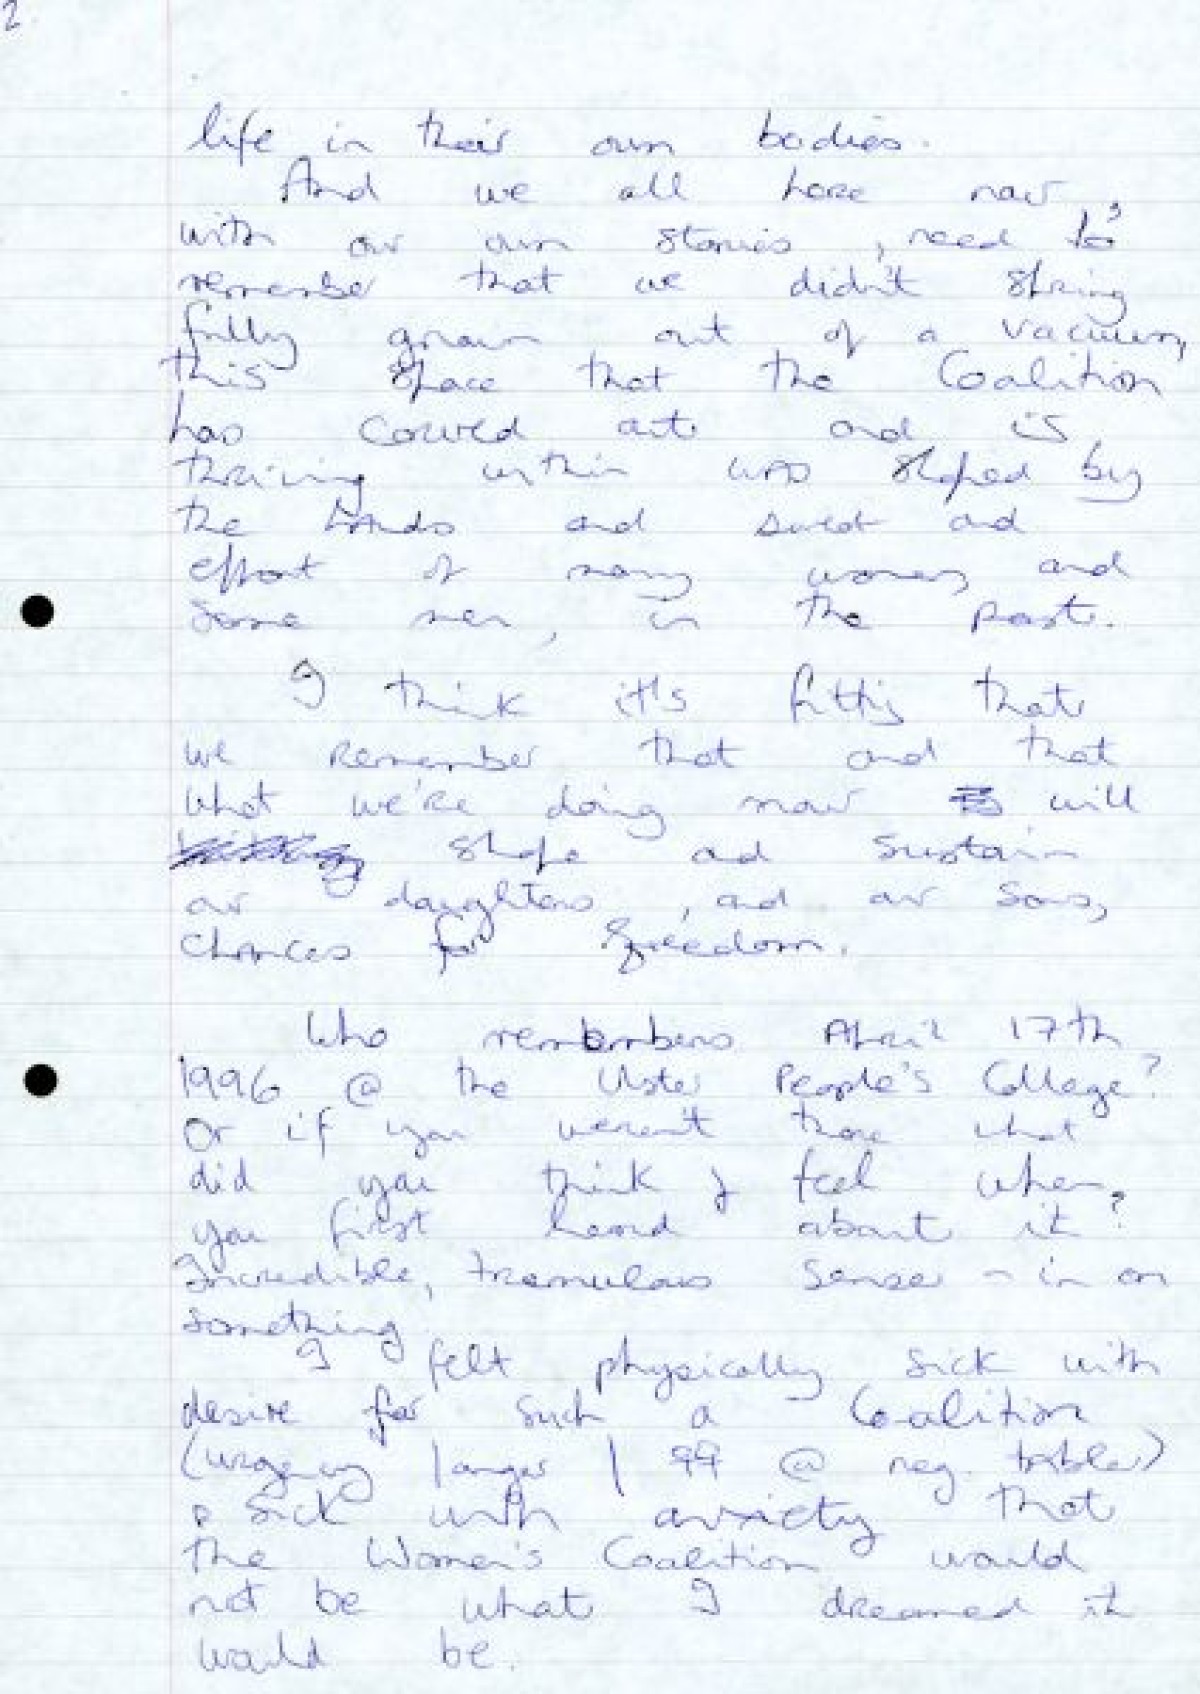 2
life in their own bodies.
And we all here now,
with our own stories, need to
remember that we didn't spring
fully grown out of a vacuum,
this space that the Coalition
has carved out and is
thriving within was shaped by
the hands and sweat and
effort of many women, and
some men, in the past.
I think it's fitting that
we remember that and that
what we're doing now will
shape and sustain
our daughters, and our sons,
chances for freedom.
Who remembers April 17th
1996 @ the Ulster People's College?
Or if you weren't there what
did you think & feel when
you first heard about it?
Incredible, tremulous sense - in on
something
I felt physically sick with
desire for such a Coalition
(urgency / anger / @ neg. tables)
& sick with anxiety that
the Women's Coalition would
not be what I dreamed it
would be.